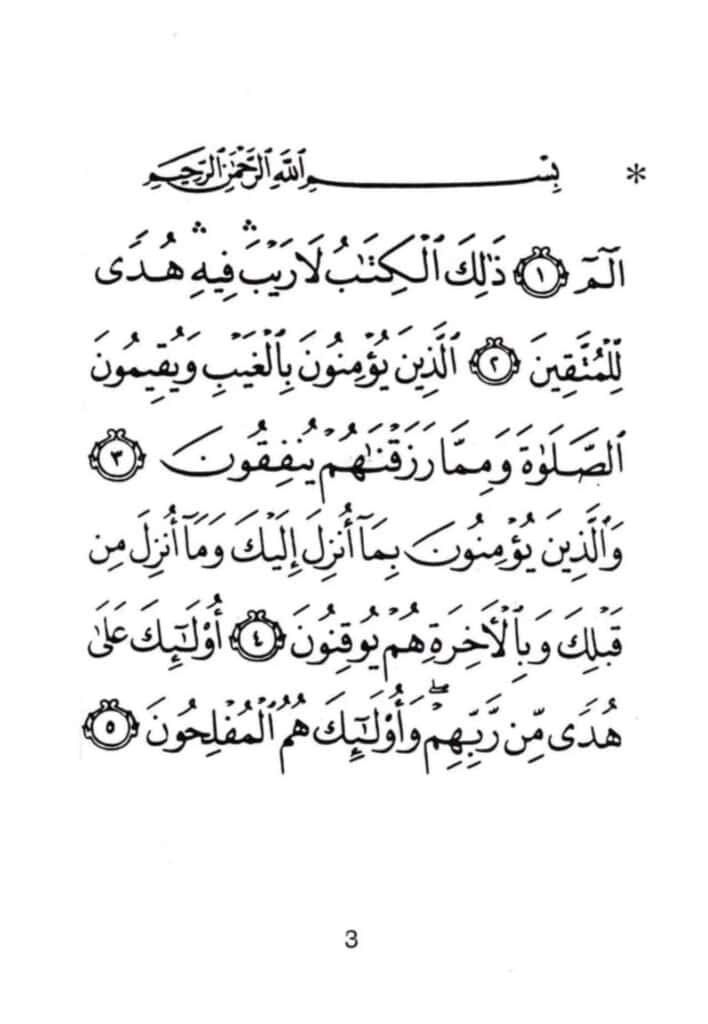 * بِسْمِ ٱللَّهِ ٱلرَّحْمَٰنِ ٱلرَّحِيمِ
الٓمٓ ۝١ ذَٰلِكَ ٱلْكِتَٰبُ لَا رَيْبَ ۛ فِيهِ ۛ هُدًى
لِّلْمُتَّقِينَ ۝٢ ٱلَّذِينَ يُؤْمِنُونَ بِٱلْغَيْبِ وَيُقِيمُونَ
ٱلصَّلَوٰةَ وَمِمَّا رَزَقْنَٰهُمْ يُنفِقُونَ ۝٣
وَٱلَّذِينَ يُؤْمِنُونَ بِمَآ أُنزِلَ إِلَيْكَ وَمَآ أُنزِلَ مِن
قَبْلِكَ وَبِٱلْأَخِرَةِ هُمْ يُوقِنُونَ ۝٤ أُوْلَٰٓئِكَ عَلَىٰ
هُدًى مِّن رَّبِّهِمْ ۖ وَأُوْلَٰٓئِكَ هُمُ ٱلْمُفْلِحُونَ ۝٥
3